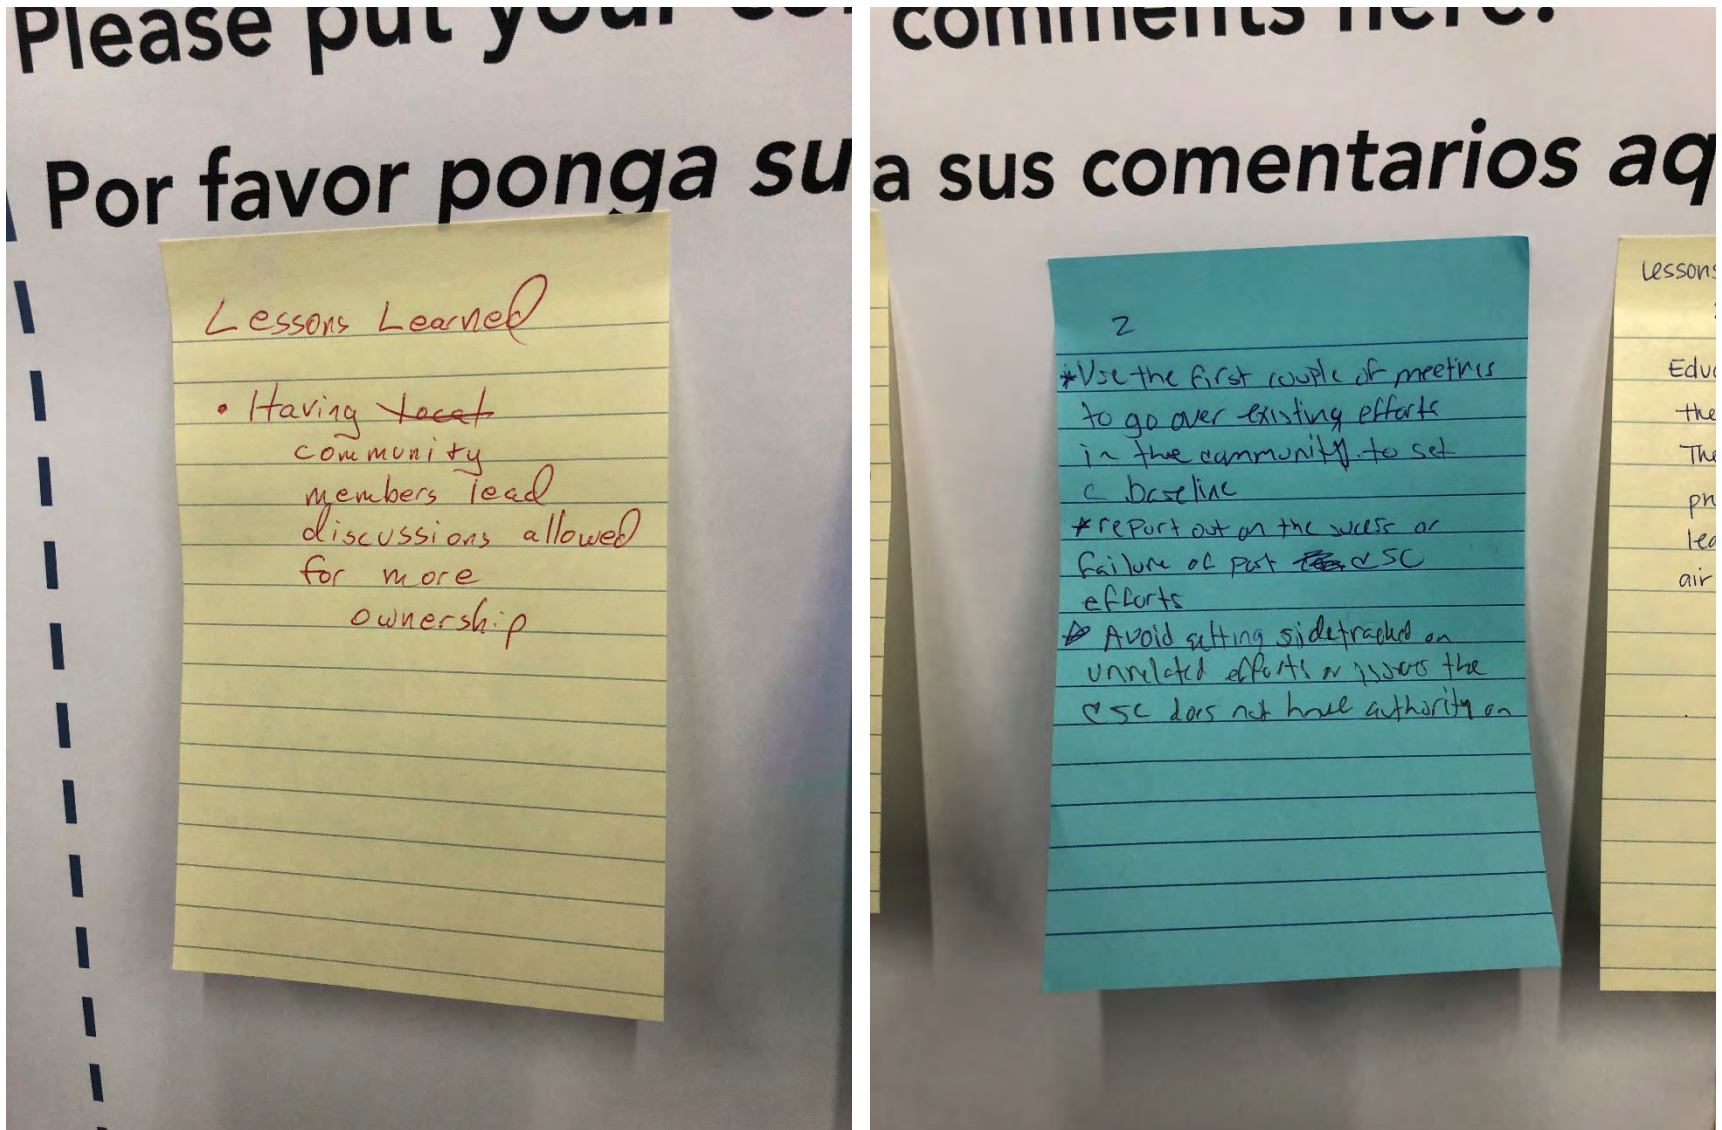 Please put your co
Por favor ponga su
Lessons Learned
• Having local
community
members lead
discussions allowed
for more
ownership
comments here.
a sus comentarios aq
2
*Use the first couple of meetings
to go over existing efforts
in the community. to set
a baseline
*report out on the sucess or
failure of past CSC
efforts
Avoid getting sidetracked on
unrelated efforts or issues the
CSC does not have authority on
Lessons
Educ
the
The
pr
lea
air